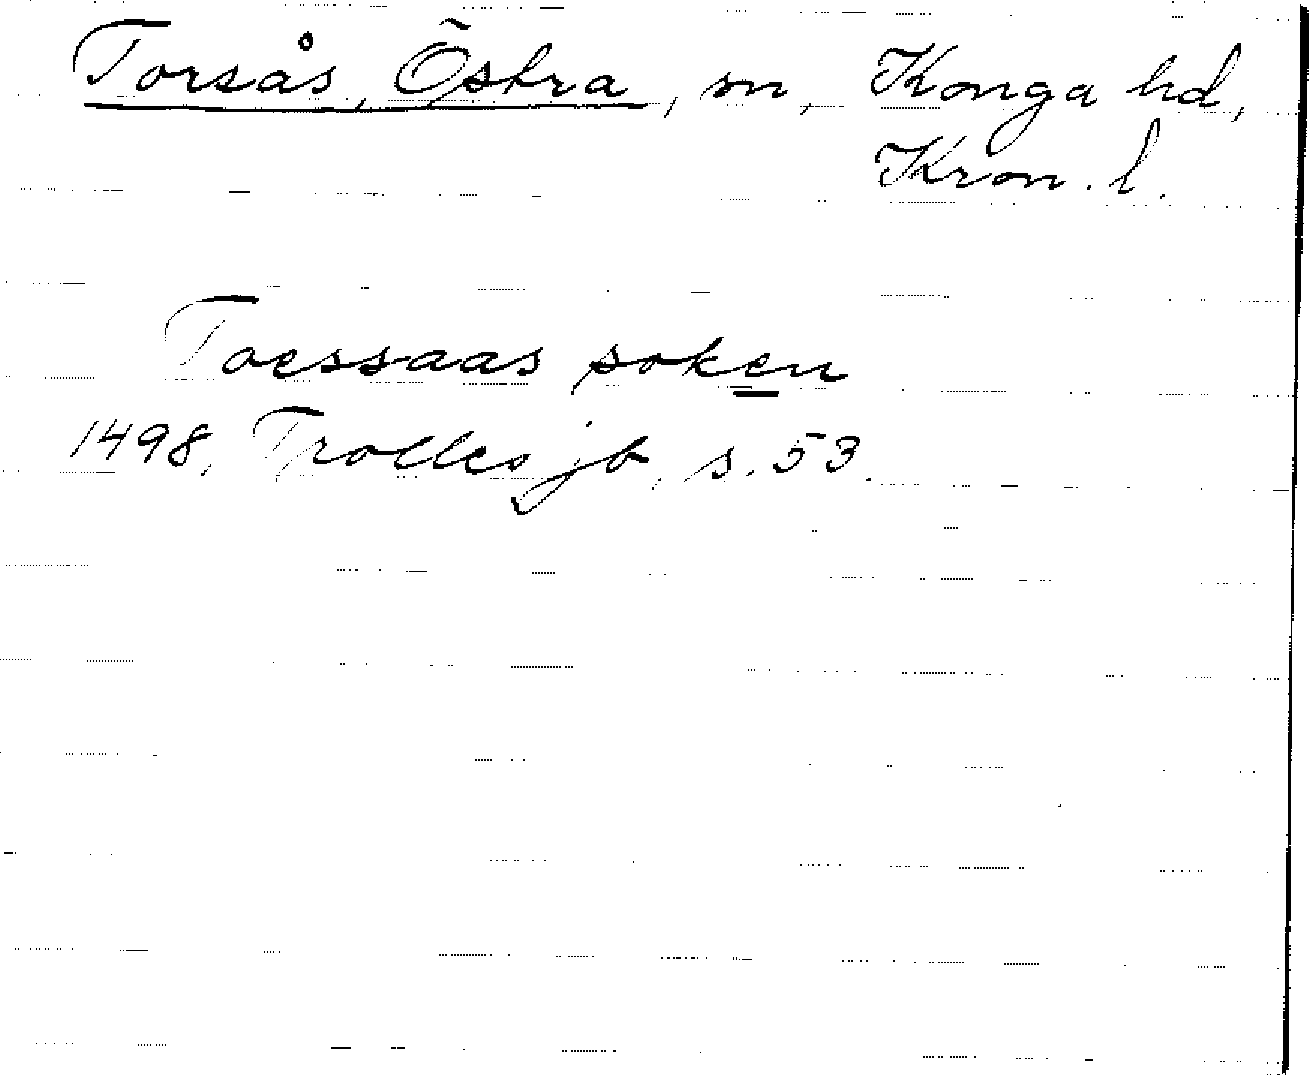 Torsås, Östra, sn, Konga hd,
Kron. l.
Toessaas soken
1498, Trolles jb, s. 53.